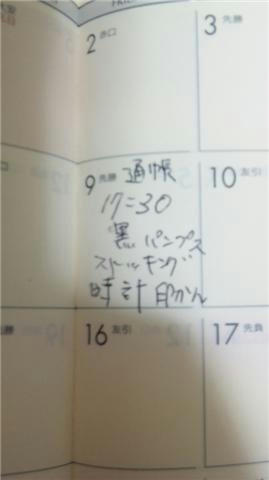 FRI
2 赤口
3 先勝
9 先勝 通帳
17=30
黒 パンプス
ストッキング
時計 印かん
10 友引
16 友引
17 先負